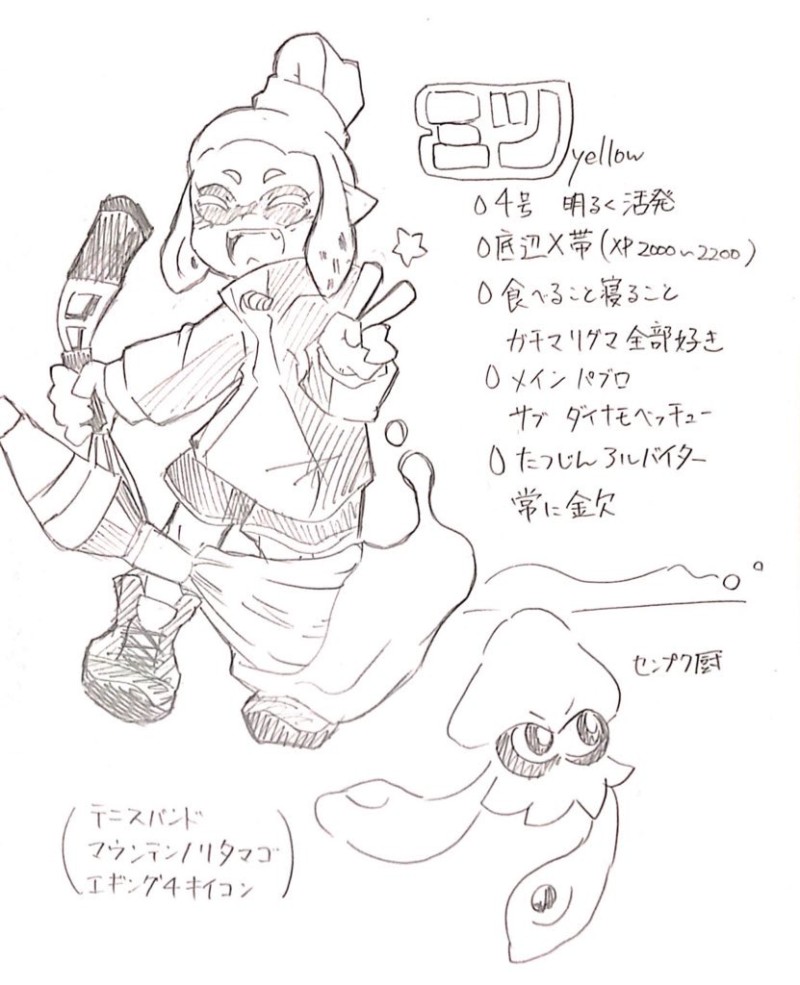 ミツ yellow
０ 4号 明るく活発
０ 底辺X帯(XP2000〜2200)
０ 食べること寝ること
ガチマリグマ全部好き
０ メインパブロ
サブ ダイナモベッチュー
０ たつじんアルバイター
常に金欠
センプク厨
(テニスバンド
マウンテンノリタマゴ
エギング4キイロン)